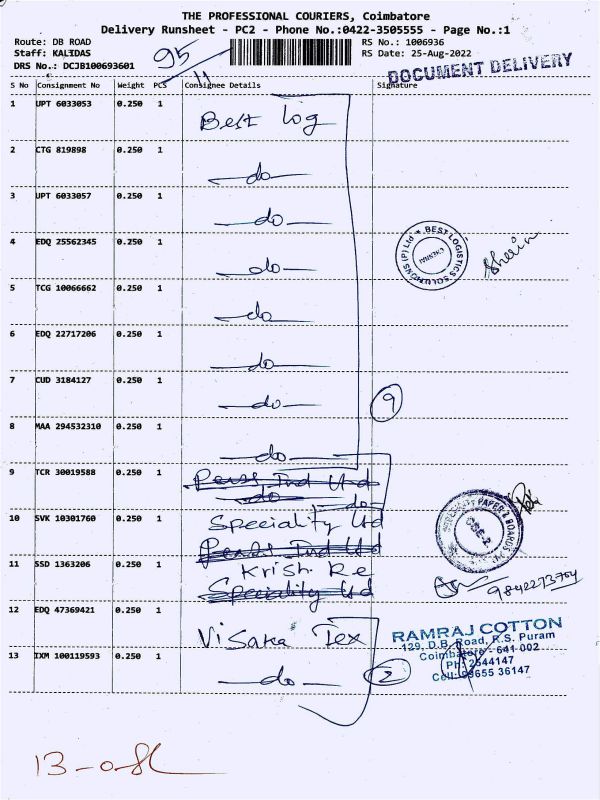 THE PROFESSIONAL COURIERS, Coimbatore
Delivery Runsheet - PC2 - Phone No.:0422-3505555 - Page No.:1
Route: DB ROAD
Staff: KALIDAS
DRS No.: DCJB100693601
95
RS No.: 1006936
RS Date: 25-Aug-2022
DOCUMENT DELIVERY
S No Consignment No Weight PCS Consignee Details Signature
1 UPT 6033053 0.250 1 Best Log
2 CTG 819898 0.250 1 do
3 UPT 6033057 0.250 1 do
4 EDQ 25562345 0.250 1 do
BEST LOGISTICS SOLUTIONS (P) Ltd
5 TCG 10066662 0.250 1 do
6 EDQ 22717206 0.250 1 do
7 CUD 3184127 0.250 1 do
9
8 MAA 294532310 0.250 1 do
9 TCR 30019588 0.250 1 do
10 SVK 10301760 0.250 1 Speciality Ltd
CBE-2
11 SSD 1363206 0.250 1 Krish Re
Speciality Ltd
9842273704
12 EDQ 47369421 0.250 1 Visaka Tex
13 IXM 100119593 0.250 1 do
2
RAMRAJ COTTON
129, D.B. Road, R.S. Puram
Coimbatore - 641 002
Ph: 2544147
Cell: 93655 36147
13-